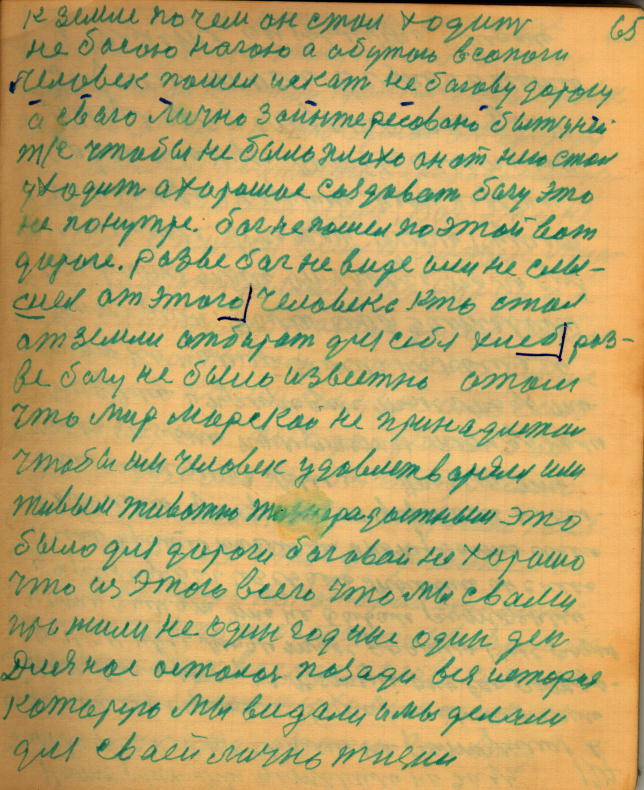 65
к земле почем он стал ходить
не босою ногою а обутою в сапоги
Человек пошел искат не багову дорогу
а сваго лично заинтересовано быт у ней
т/е чтобы не было плохо он от него стал
уходит а хорошое создават богу это
не понутре. бог не пошел по этой вот
дороге. разве бог не виде или не слы-
сшел от этого человека кто стал
от земли отбират для себя хлеб, раз-
ве богу не было известно отом
что мир морской не принадлежал
чтобы им человек удовлетварялся или
живым животно радостным это
было для дороги боговай не хорошо
что из этого всего что мы свами
прожили не один год ные один ден
Для нас остолос позади вся история
которую мы видали и мы делали
для сваей лично жизни